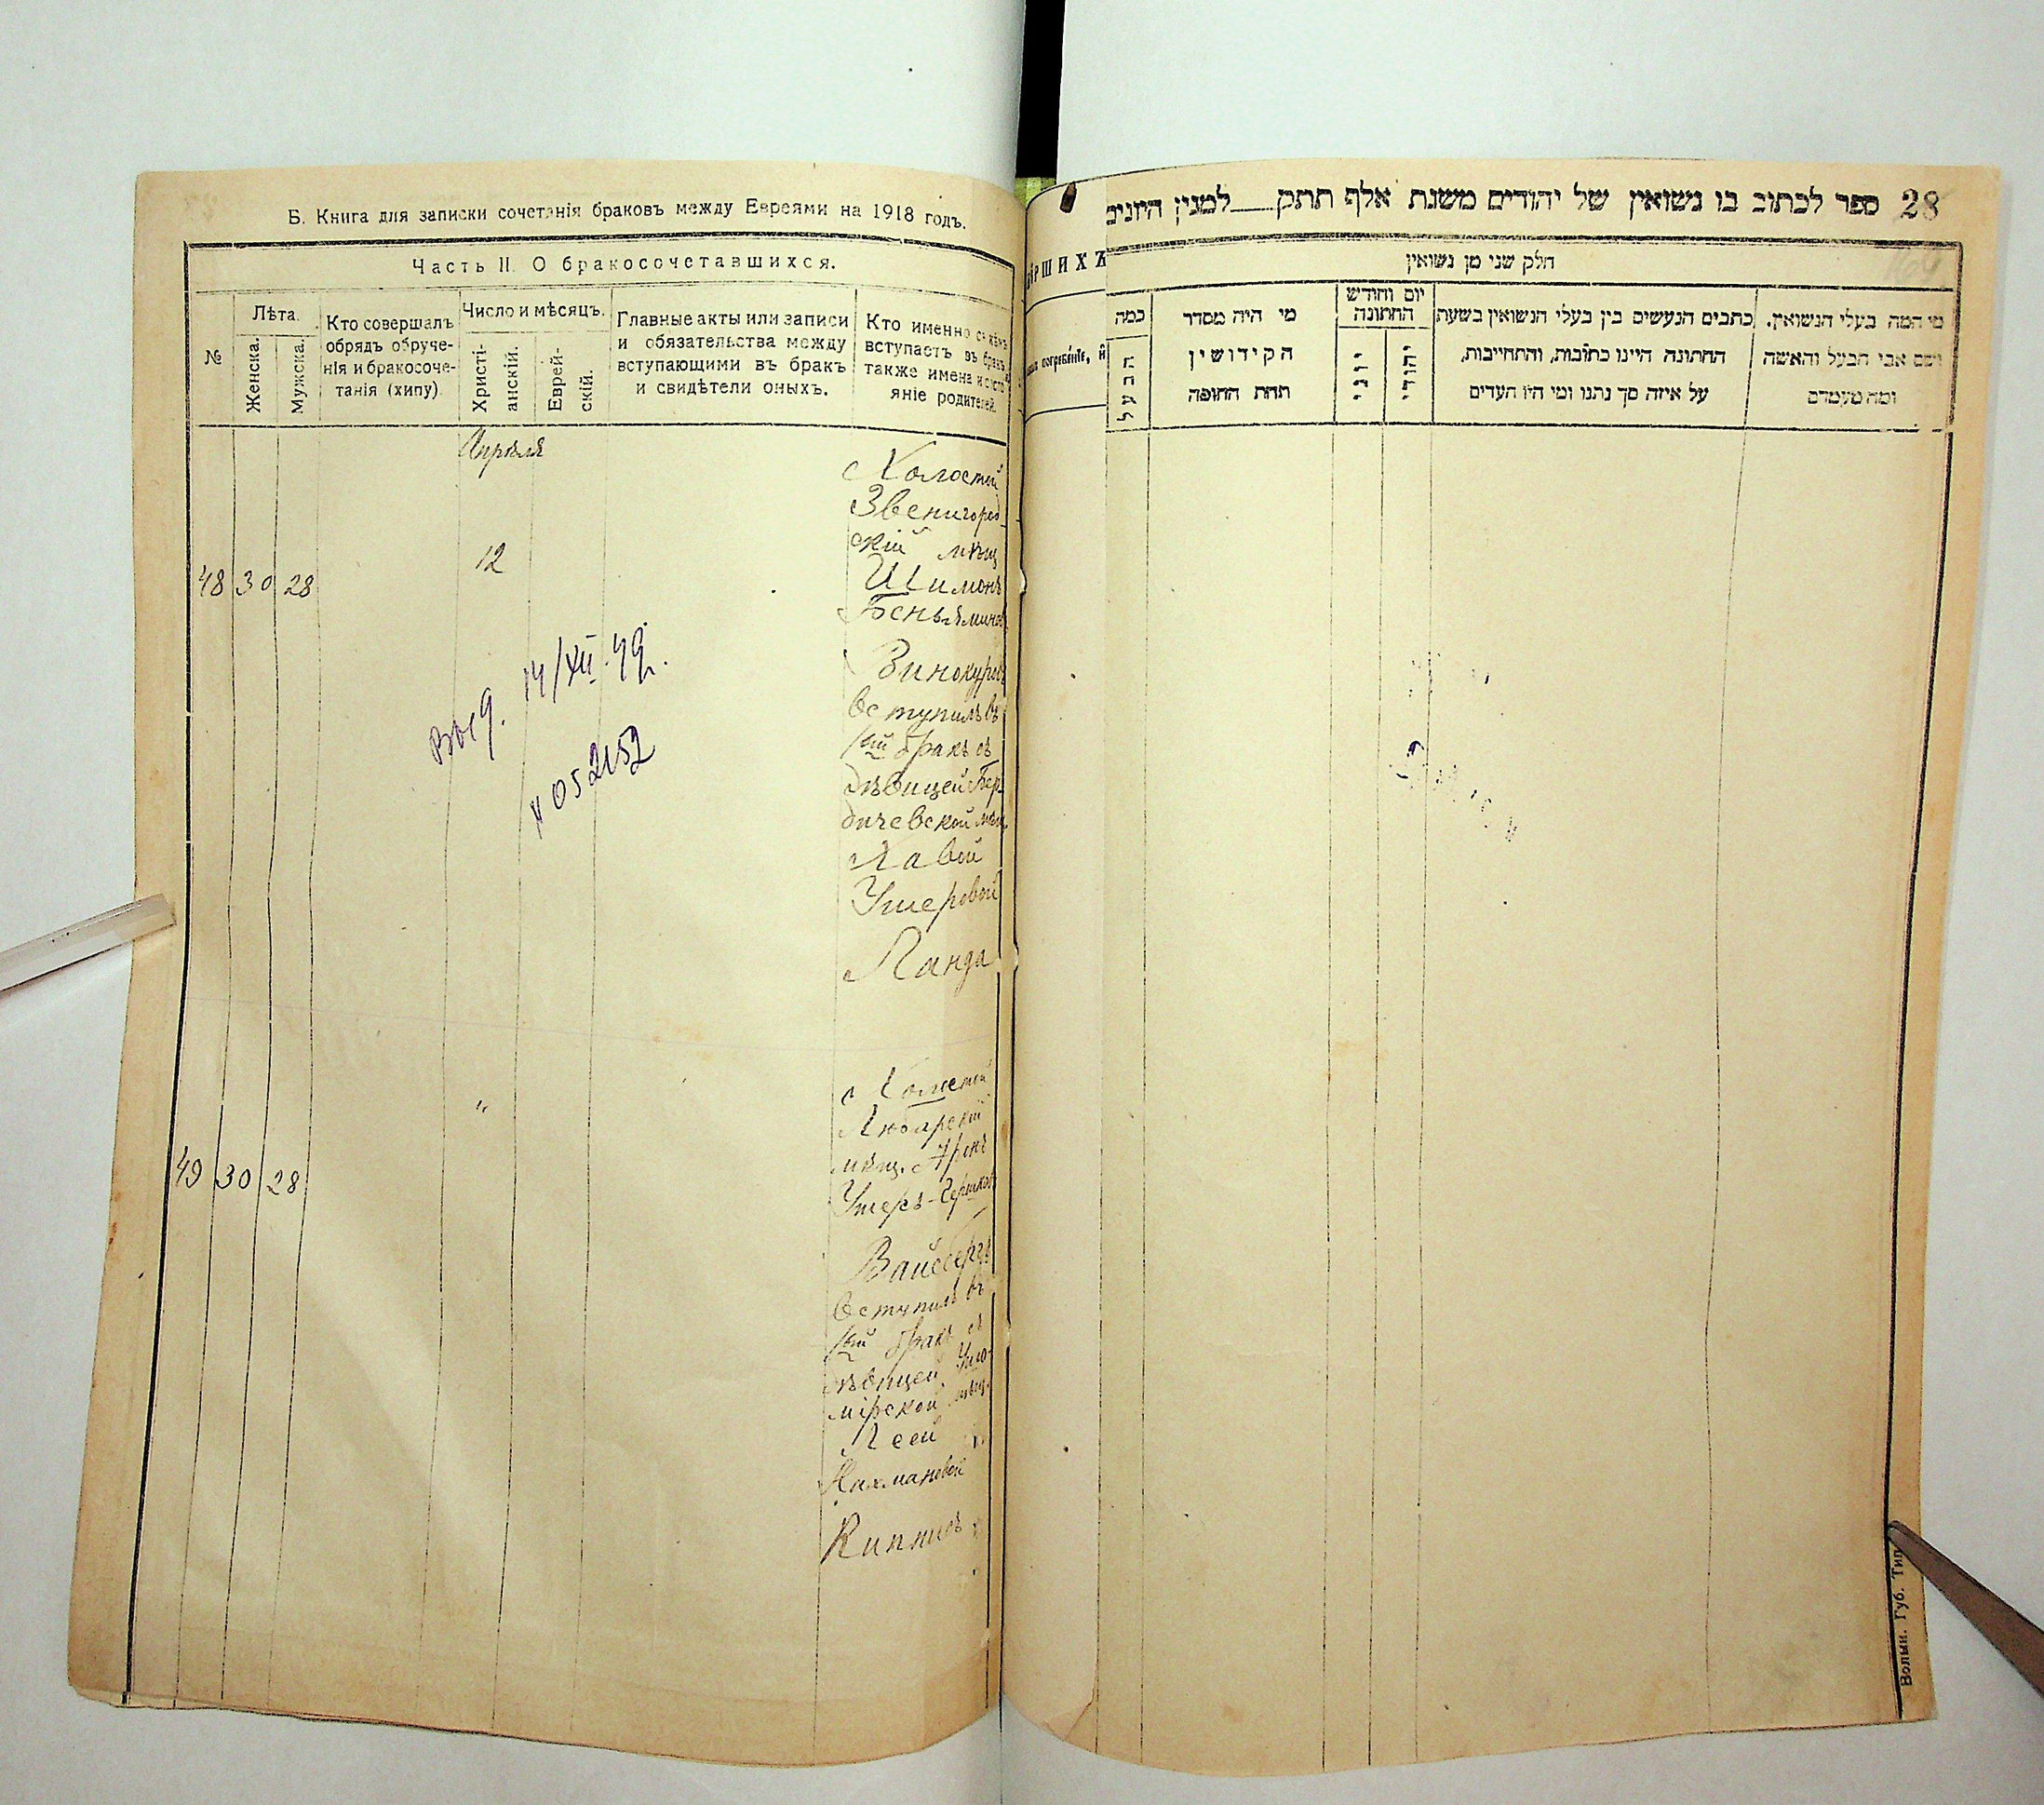 Б. Книга для записки сочетанія браковъ между Евреями на 1918 годъ.
Часть II. О бракосочетавшихся.
№
Лѣта.
Женска.
Мужска.
Кто совершалъ
обрядъ обруче-
нія и бракосоче-
танія (хипу).
Число и мѣсяцъ.
Христі-
анскій.
Еврей-
скій.
Главные акты или записи
и обязательства между
вступающими въ бракъ
и свидѣтели оныхъ.
Кто именно съ кѣмъ
вступаетъ въ бракъ,
также имена и состо
яніе родителей.
Апрѣля
48 30 28
12
Холостой
Звенигород
скій мѣщ
Шимонъ
Беньяминов
Винокуров
вступилъ въ
1ый бракъ съ
дѣвицей Бер
дичевской мѣщ.
Хавой
Ушеровой
Ланда
Выд. 14/XII.49г.
№ 052152
49 30 28
"
Холостой
Любарскій
мѣщ. Аронъ
Ушеръ-Гершков
Вайсберг
вступилъ въ
1ый бракъ съ
дѣвицей
мірской мѣщ.
Леей
Нахмановой
Кипнисъ
28 ספר לכתוב בו נשואין של יהודים משנת אלף תתק למנין היונים
חלק שני מן נשואין
מי המה בעלי הנשואין.
ושם אבי הבעל והאשה
ומה מעמדם
כתבים הנעשים בין בעלי הנשואין בשעת
החתונה היינו כתובות, והתחייבות,
על איזה סך נתנו ומי היו העדים
יום וחודש
החתונה
יהודי
יוני
מי היה מסדר
הקידושין
תחת החופה
כמה
הבעל
ршихъ
погребеніе, и
Волын. Губ. Тип